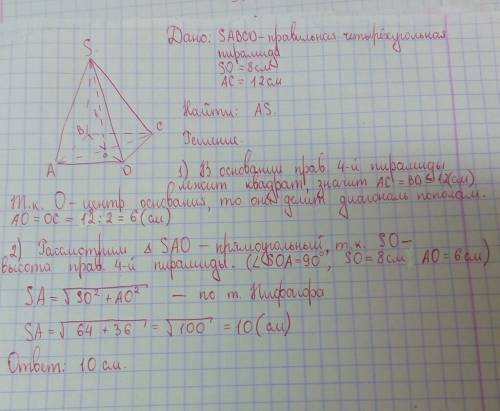 S
B
C
A
O
D
Дано: SABCD-правильная четырёхугольная
пирамида
SO = 8 см
AC = 12 см
Найти: AS.
Решение.
1) В основании прав. 4-й пирамиды
лежит квадрат, значит AC = BD = 12(см)
Т.к. O - центр основания, то она делит диагональ пополам.
AO = OC = 12 : 2 = 6 (см)
2) Рассмотрим △ SAO - прямоугольный, т.к. SO-
высота прав. 4-й пирамиды. (∠SOA=90°, SO=8см AO=6см)
SA = √SO² + AO² - по т. Пифагора
SA = √64 + 36 = √100 = 10 (см)
Ответ: 10 см.